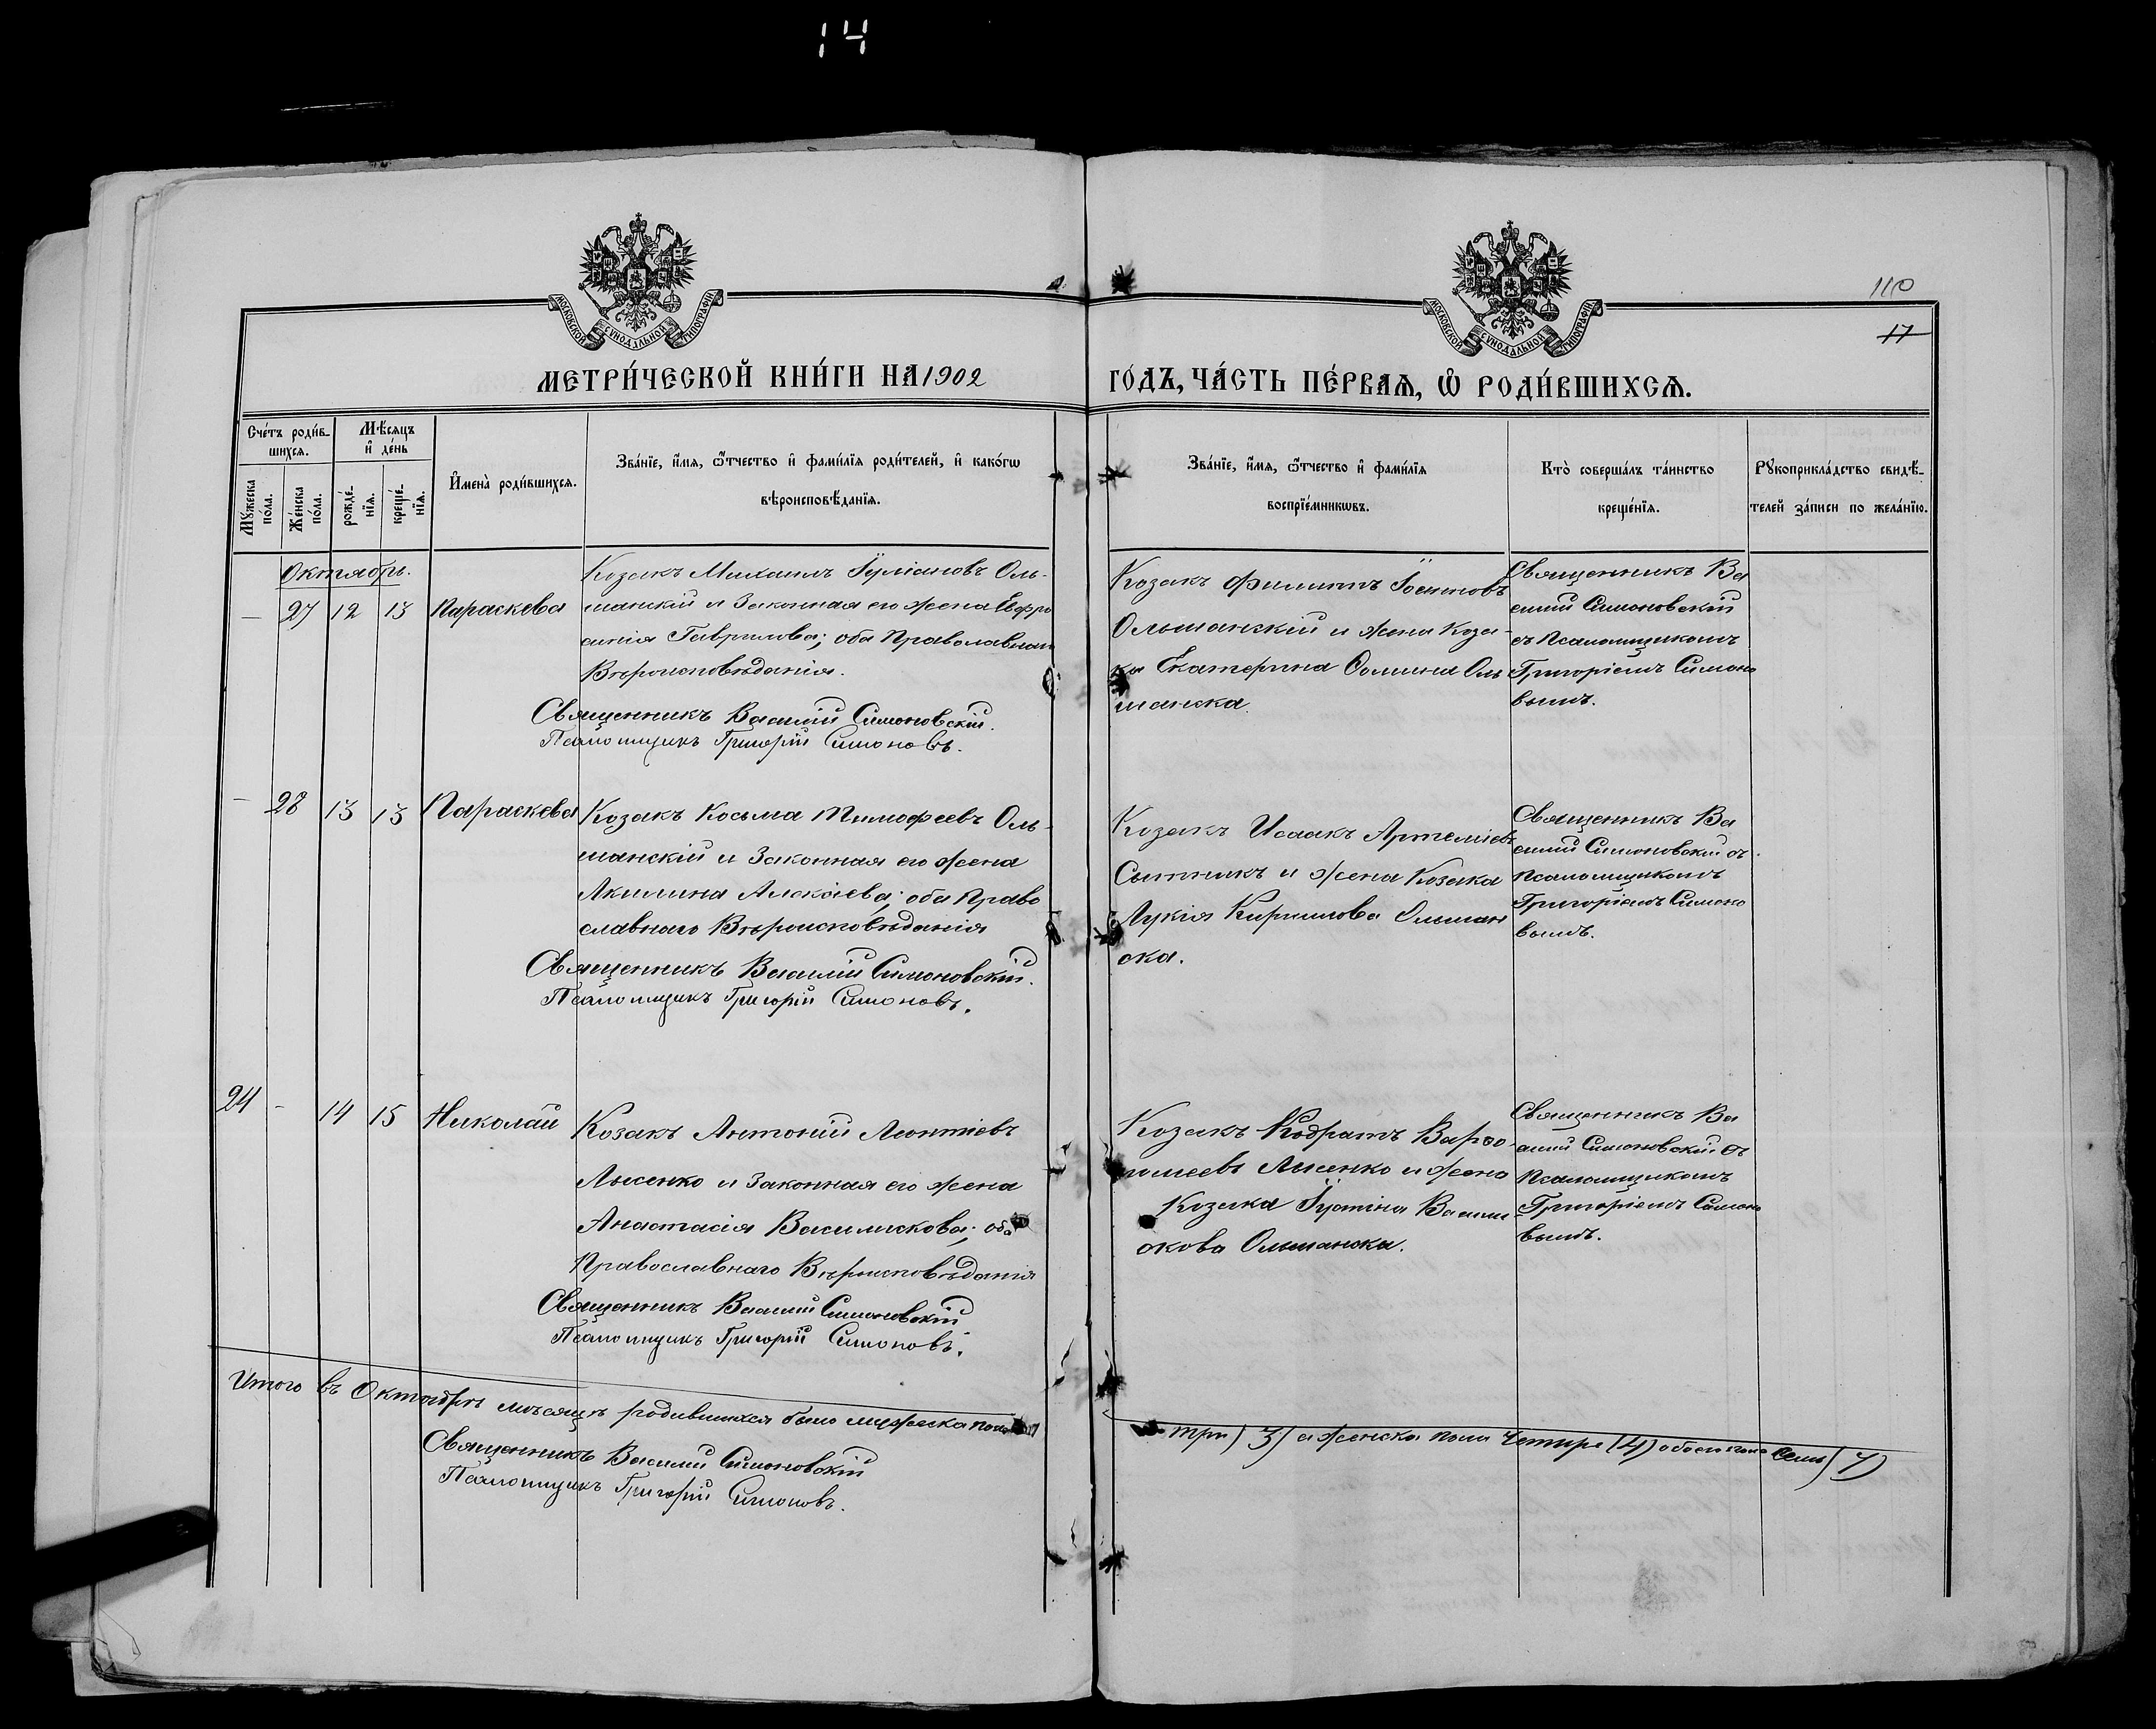 14
110
17
МОСКОВСКОЙ СѴНОДАЛЬНОЙ ТИПОГРАФІИ
МОСКОВСКОЙ СѴНОДАЛЬНОЙ ТИПОГРАФІИ
МЕТРИ́ЧЕСКОЙ КНИ́ГИ НА 1902 ГО́ДЪ, ЧА́СТЬ ПЕ́РВАѦ, Ѡ҆ РОДИ́ВШИХСѦ.
Сче́тъ роди́в-
шихсѧ.
Мꙋ́жеска
по́ла.
Же́нска
по́ла.
Мѣ́сѧцъ
и҆ де́нь
рожде́-
нїѧ.
креще́-
нїѧ.
И҆мена̀ роди́вшихсѧ.
Зва́нїе, и҆́мѧ, ѻ҆́тчество и҆ фами́лїѧ роди́телей, и҆ како́гѡ
вѣроисповѣ́данїѧ.
Зва́нїе, и҆́мѧ, ѻ҆́тчество и҆ фами́лїѧ
воспрїе́мникѡвъ.
Кто̀ соверша́лъ та́инство
креще́нїѧ.
Рꙋкоприкла́дство свидѣ́-
телей за́писи по жела́нїю.
Октябрь.
— 27 12 13 Параскева
Козакъ Михаилъ Іуліановъ Оль-
шанскій и Законная его жена Евфро
синія Гаврилова; оба Православнаго
Вѣроисповѣданія.
Священникъ Василій Симоновскій.
Псаломщикъ Григорій Симоновъ.
Козакъ Филиппъ
Ольшанскій и жена Коза-
ка Екатерина Ѳомина Оль
шанска.
Священникъ Ва
силій Симоновскій
съ Псаломщикомъ
Григоріемъ Симоно
вымъ.
— 28 13 13 Параскева
Козакъ Косьма Тимофеевъ Оль-
шанскій и Законная его жена
Акилина Алексіева; оба Право
славнаго Вѣроисповѣданія
Священникъ Василій Симоновскій.
Псаломщикъ Григорій Симоновъ.
Козакъ Исаакъ Артеміевъ
Сытникъ и жена Козака
Лукія Кириллова Ольшан
ска.
Священникъ Ва
силій Симоновскій съ
Псаломщикомъ
Григоріемъ Симоно
вымъ.
24 - 14 15 Николай
Козакъ Антоній Леонтіевъ
Лысенко и Законная его жена
Анастасія Василискова; оба
Православнаго Вѣроисповѣданія
Священникъ Василій Симоновскій
Псаломщикъ Григорій Симоновъ.
Козакъ Кодратъ Варѳо-
ломеевъ Лысенко и жена
Козака Іустіна Васили
скова Ольшанска.
Священникъ Ва
силій Симоновскій съ
Псаломщикомъ
Григоріемъ Симоно
вымъ.
Итого въ Октябрѣ мѣсяцѣ родившихся было мужеска пола три (3) а женска пола четыре (4) обоего пола семь (7)
Священникъ Василій Симоновскій
Псаломщикъ Григорій Симоновъ.